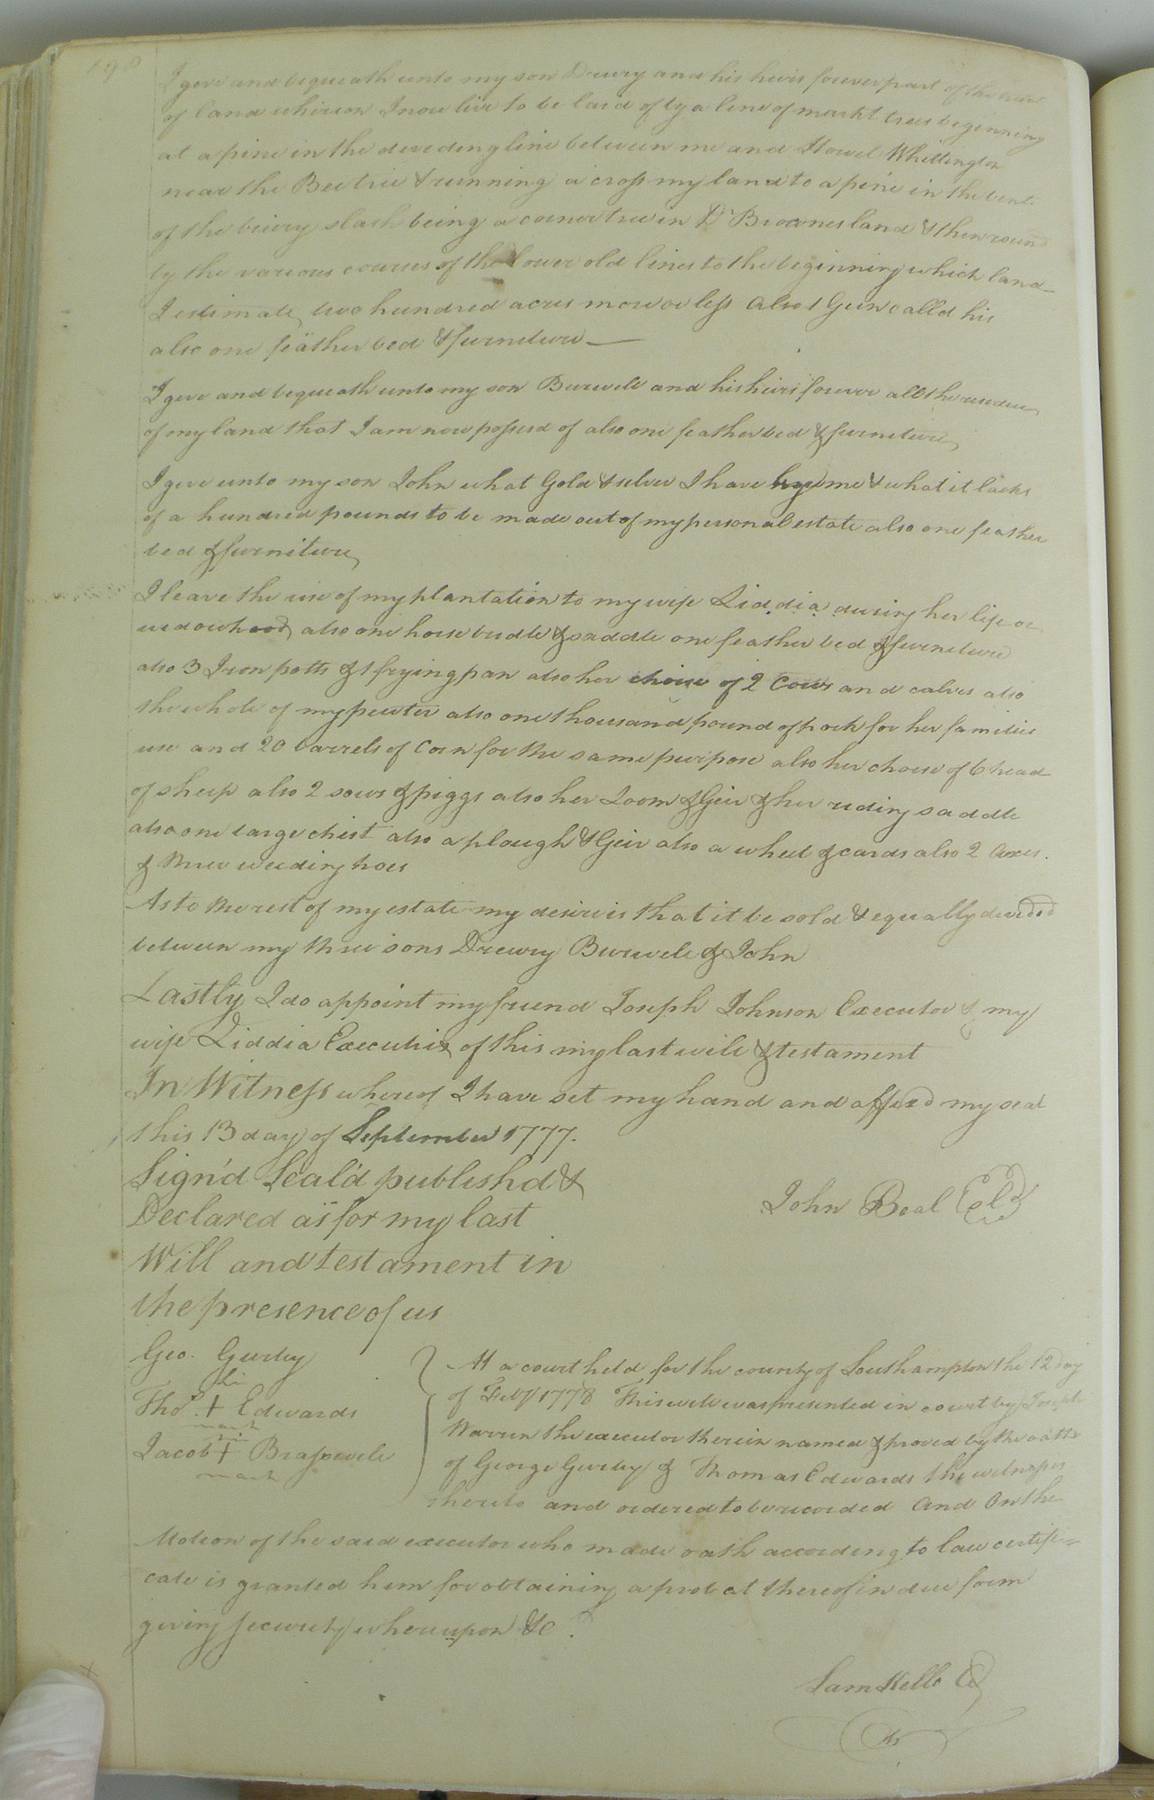 198
I give and bequeath unto my son Drewry and his heirs forever part of the tract
of land whereon I now live to be laid of by a line of markt trees beginning
at a pine in the deveding line between me and Howel Whittington
near the Bee tree & running a cross my land to a pine in the
of the briery slash being a corner tree in D Brownes land & then round
by the various courses of the lower old lines to the beginning which land
I estimate two hundred acres more or less also 1 Gun calld his
also one feather bed & furniture
I give and bequeath unto my son Burwell and his heirs forever all the residue
of my land that I am now possesd of also one feather bed & furniture
I give unto my son John what Gold & silver I have by me & what it lacks
of a hundred pounds to be made out of my personal estate also one feather
bed & furniture
I leave the use of my plantation to my wife Liddia during her life or
widowhood also one horse bridle & saddle one feather bed & furniture
also 3 Iron potts & 1 frying pan also her choise of 2 Cows and calves also
the whole of my pewter also one thousand pound of pork for her families
use and 20 barrels of Corn for the same purpose also her choise of 6 head
of sheep also 2 sows & piggs also her Loom & Geir & her riding saddle
also one large chist also a plough & Geir also a wheel & cards also 2 Axes
& three weeding hoes
As to the rest of my estate my desire is that it be sold & equally devided
between my three sons Drewry Burwell & John
Lastly I do appoint my friend Joseph Johnson Executor & my
wife Liddia Executrix of this my last will & testament
In Witness whereof I have set my hand and affixed my seal
this 13 day of September 1777.
Sign'd Seal'd publishd &
Declared as for my last
John Beal
Will and testament in
the presence of us
Geo. Gurley
his
Thos + Edwards
mark
his
Jacob + Brasswell
mark
At a court held for the county of Southampton the 12 day
of Feby 1778 This will was presented in court by Joseph
Warren the executor therein named & proved by the oaths
of George Gurley & Thomas Edwards the witnesses
thereto and ordered to be recorded And On the
Motion of the said executor who made oath according to law certifi=
cate is granted him for obtaining a probat thereof in due form
giving security whereupon &c.
Sam Kello